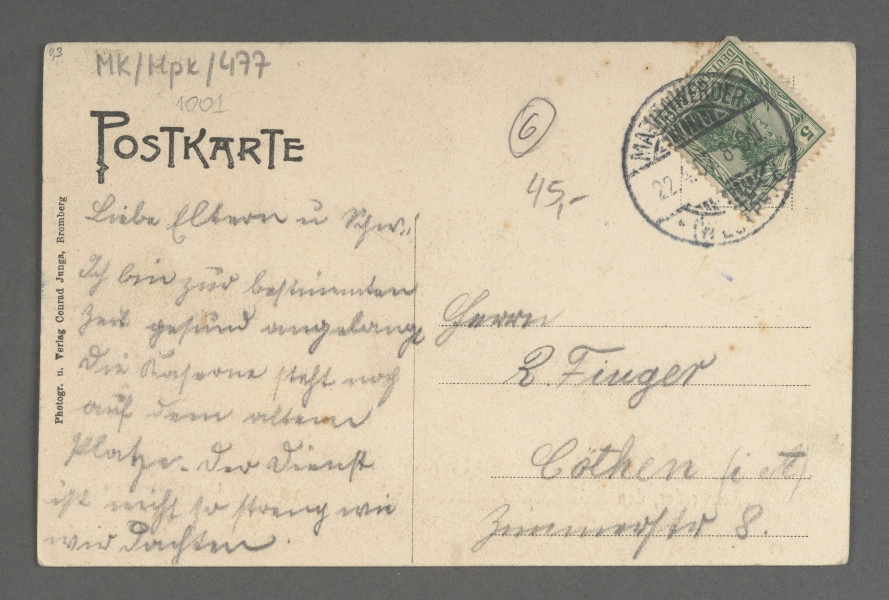 93
MK/Mpk/477
1001
POSTKARTE
6
45,-
MARIENWERDER
22.4.
(WESTPR.)
DEUT
5
Photogr. u. Verlag Conrad Junga, Bromberg
Liebe Eltern u Schw.!
Ich bin zur bestimmten
Zeit gesund angelangt
Die Kaserne steht noch
auf dem altem
Platze. Der Dienst
ist nicht so streng wie
wir dachten
Herrn
R. Finger
Cöthen (i A)
Zimmerstr 8.